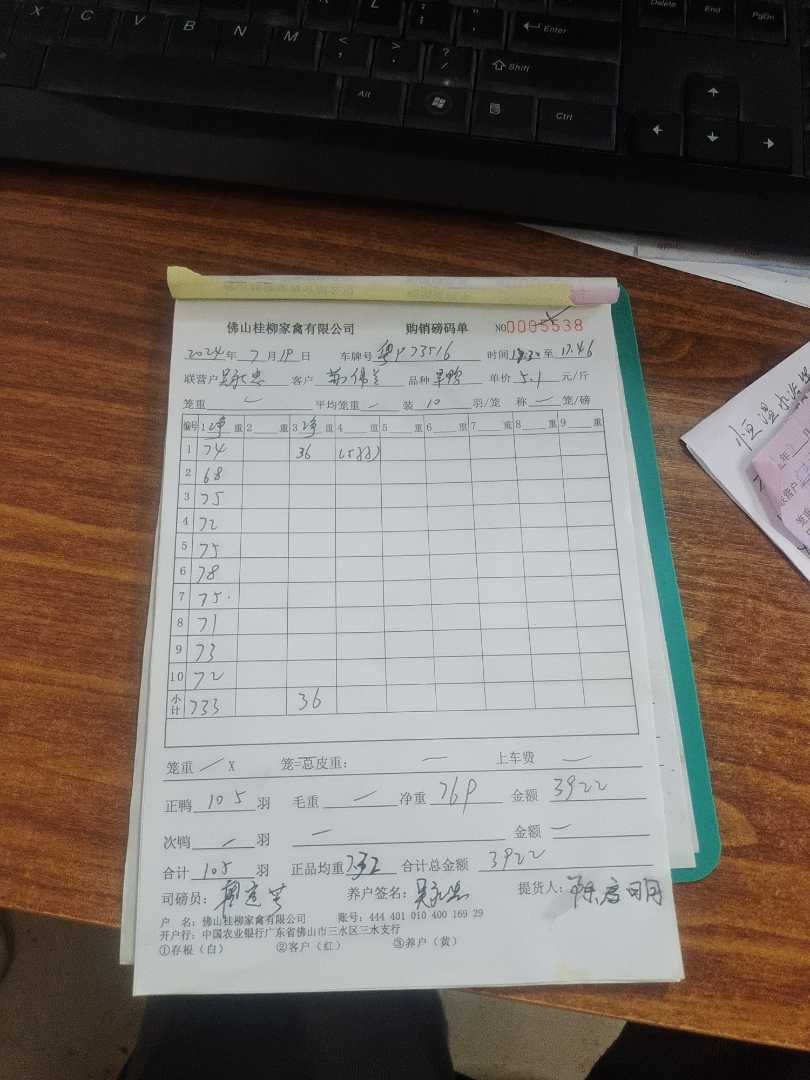 佛山桂柳家禽有限公司 购销磅码单 NO0005538
2024年 7月19日 车牌号 粤P73516 时间 至 17.46
联营户 客户 品种 单价 5.1 元/斤
笼重 — 平均笼重 — 装 10 羽/笼 称 — 笼/磅
编号 1净重 2 重 3净重 4 重 5 重 6 重 7 重 8 重 9 重
1 74 36 (5羽)
2 68
3 75
4 72
5 75
6 78
7 75.
8 71
9 73
10 72
小计 733 36
笼重 — X 笼=总皮重: — 上车费 —
正鸭 105 羽 毛重 — 净重 769 金额 3922
次鸭 — 羽 — 金额 —
合计 105 羽 正品均重 7.32 合计总金额 3922
司磅员: 养户签名: 提货人:
户 名: 佛山桂柳家禽有限公司 账号: 444 401 010 400 169 29
开户行: 中国农业银行广东省佛山市三水区三水支行
①存根(白) ②客户(红) ③养户(黄)
X C V B N M < , > . ? / Enter Shift
Alt Ctrl
Delete End PgDn
恒温